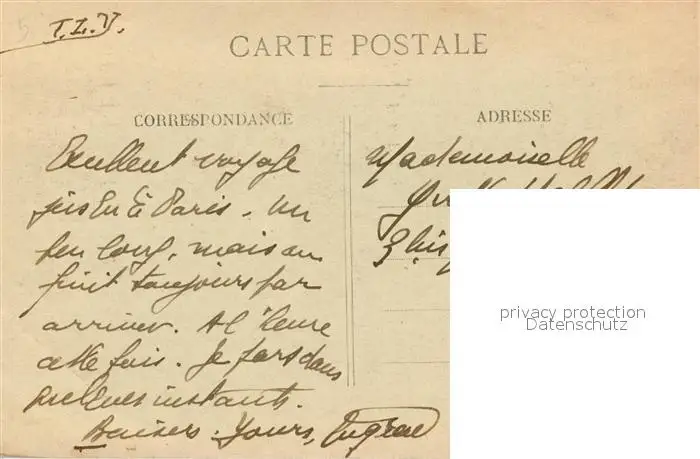 T.L.V.
CARTE POSTALE
CORRESPONDANCE
Excellent voyage
jusqu'à Paris. Un
peu long, mais on
finit toujours par
arriver. A l'heure
cette fois. Je pars dans
quelques instants.
Baisers. Yours, Eugène
ADRESSE
Mademoiselle
3 bis
privacy protection
Datenschutz